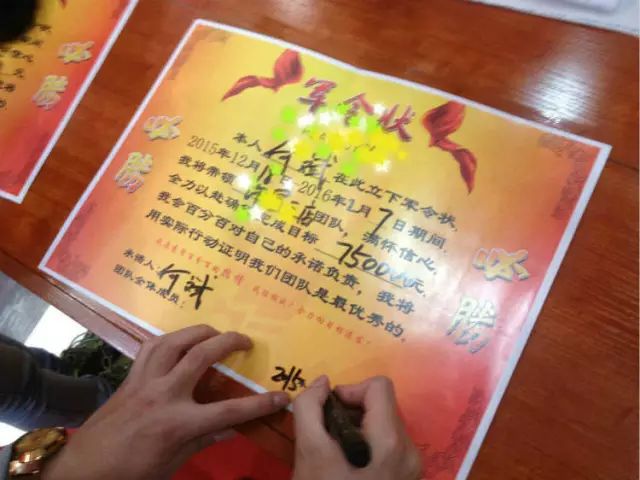 军令状
本人何斌,在此立下军令状,
2015年12月 2016年1月7日期间,
我将带领 店团队,满怀信心,
全力以赴确 完成目标 75000 元,
我会百分百对自己的承诺负责,我将
用实际行动证明我们团队是最优秀的。
承诺人: 何斌
团队全体成员:
2015
必
胜
必
胜
必
胜